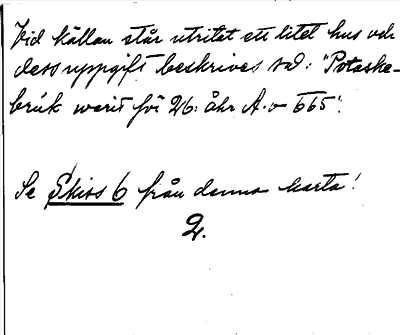 Vid källan står utritat ett litet hus och
dess uppgift beskrives så: "Potaske-
bruk warit för 26: åhr A:o 665".
Se Skiss 6 från denna karta!
2.